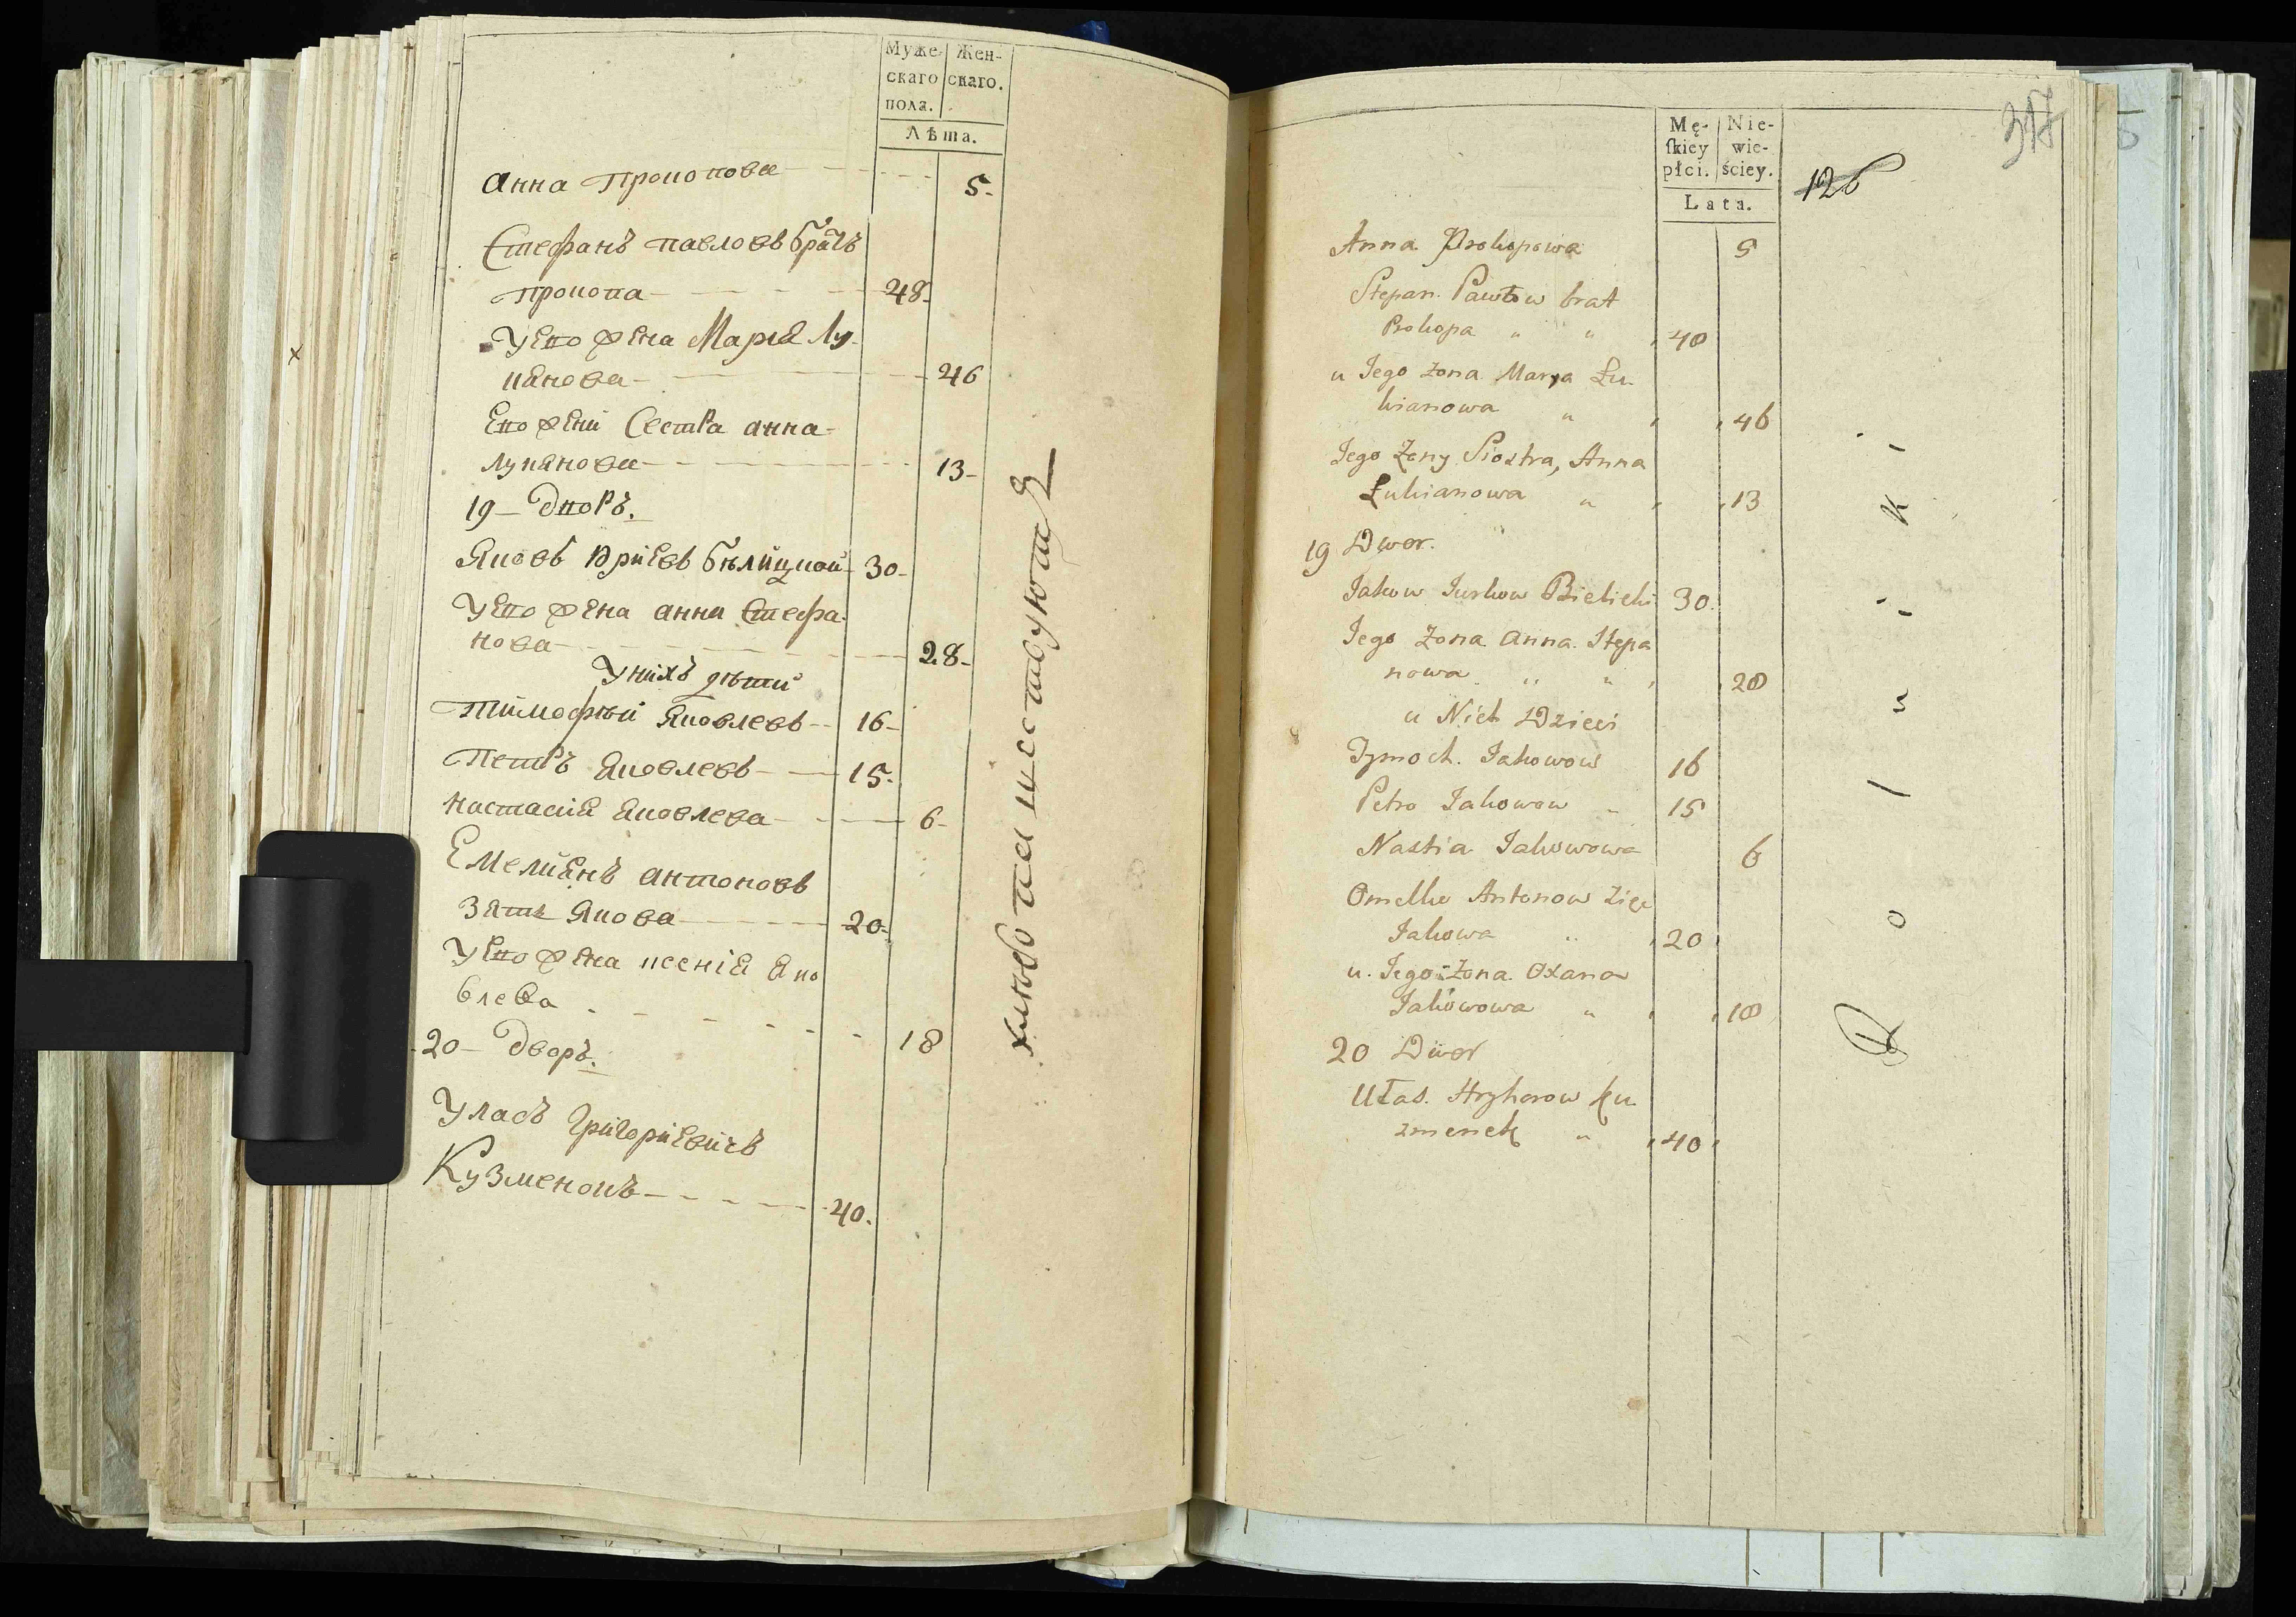 Муже- Жен-
скаго скаго.
пола.
Лѣта.
Анна Прокопова 5.
Стефанъ Павловъ братъ
Прокопа 48.
У Его жена Марія Лу-
кянова 46
Его жени Сестра анна
Лукянова 13
19 Дворъ.
Яковъ Юриевъ бѣлицкой 30
У Его жена анна Стефа-
нова 28
У нихъ дѣти
Тимофѣй Яковлевъ 16
Петръ Яковлевъ 15.
Настасия Яковлева 6
Емелиянъ антоновъ
Зять Якова 20
У Его жена ксения Яко
влева 18
20 Дворъ.
Уласъ Григориевичъ
Кузменокъ 40.
Mę- Nie-
ſkiey wie-
płci. ściey.
Lata.
317
126
Anna Prokopowa 5
Stepan Pawłow brat
Prokopa " " 48
u Jego Zona Marya Łu-
kianowa " 46
Jego Zeny Siostra, Anna
Łukianowa " 13
19 Dwor.
Jakow Jurkow Bielicki 30
Jego Zona Anna Stepa
nowa " " 28
u Nich Dzieci
Tymoch. Jakowow 16
Petro Jakowow 15
Nastia Jakowowa 6
Omelko Antonow Zięć
Jakowa " 20
u Jego Zona Oxana
Jakowowa " 18
20 Dwor
Ułas Hryhorow Ku
zmenek " 40
R o l n i k i